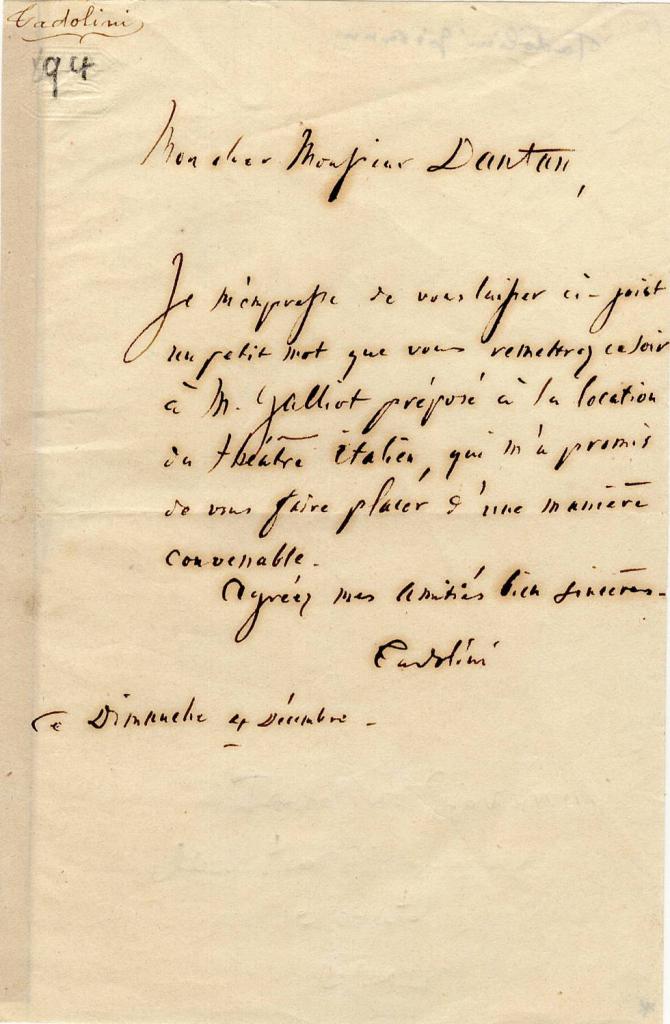 Tadolini
94
Mon cher Monsieur Dantan,
Je m'empresse de vous laisser ci-joint
un petit mot que vous remettrez ce soir
à M. Galliot préposé à la location
du théâtre italien, qui m'a promis
de vous faire placer d'une manière
convenable.
Agréez mes amitiés bien sincères.
Tadolini
Ce Dimanche 4 Décembre.